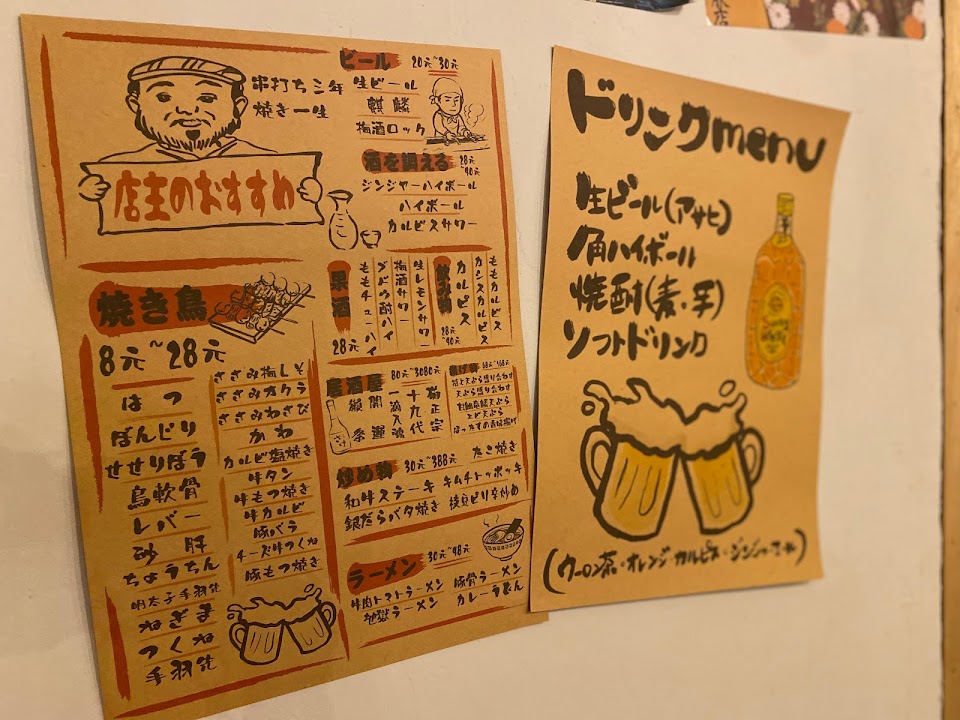 串打ち三年
焼き一生
店主のおすすめ
ビール 20元~30元
生ビール
麒麟
梅酒ロック
酒を調える 28元~40元
ジンジャーハイボール
ハイボール
カルピスサワー
焼き鳥
8元~28元
はつ
ぼんじり
せせりぽう
鳥軟骨
レバー
砂肝
ちょうちん
明太子手羽先
ねぎま
つくね
手羽先
ささみ梅しそ
ささみオクラ
ささみわさび
かわ
カルビ塩焼き
牛タン
牛もつ焼き
牛カルビ
豚バラ
チーズ牛つくね
豚もつ焼き
果酒 28元
ももチューハイ
ブドウ酎ハイ
梅酒サワー
生レモンサワー
飲み物 28元~40元
カルピス
カシスカルピス
ももカルピス
居酒屋 80元~3080元
獺祭
開運
十九代
菊正宗
揚げ物
天ぷら盛り合わせ
えび天ぷら
炒め物 30元~388元
たこ焼き
和牛ステーキ キムチトッポッキ
銀だらバタ焼き 枝豆ピリ辛炒め
ラーメン 30元~48元
牛肉トマトラーメン 豚骨ラーメン
地獄ラーメン カレーうどん
ドリンクmenu
生ビール(アサヒ)
角ハイボール
焼酎(麦・芋)
ソフトドリンク
(ウーロン茶・オレンジ・カルピス・ジンジャーエール)